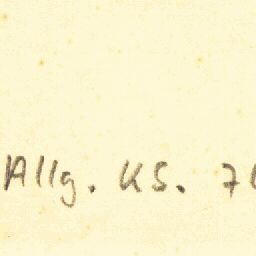 Allg. KS. 7